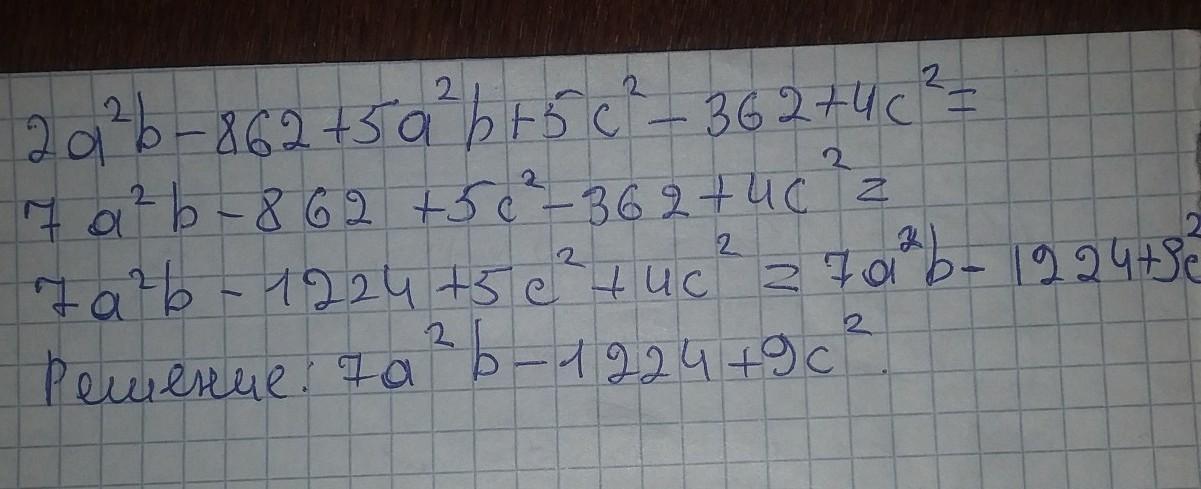 2a²b-862+5a²b+5c²-362+4c²=
7a²b-862+5c²-362+4c²=
7a²b-1224+5c²+4c²=7a²b-1224+9c²
Решение: 7a²b-1224+9c².